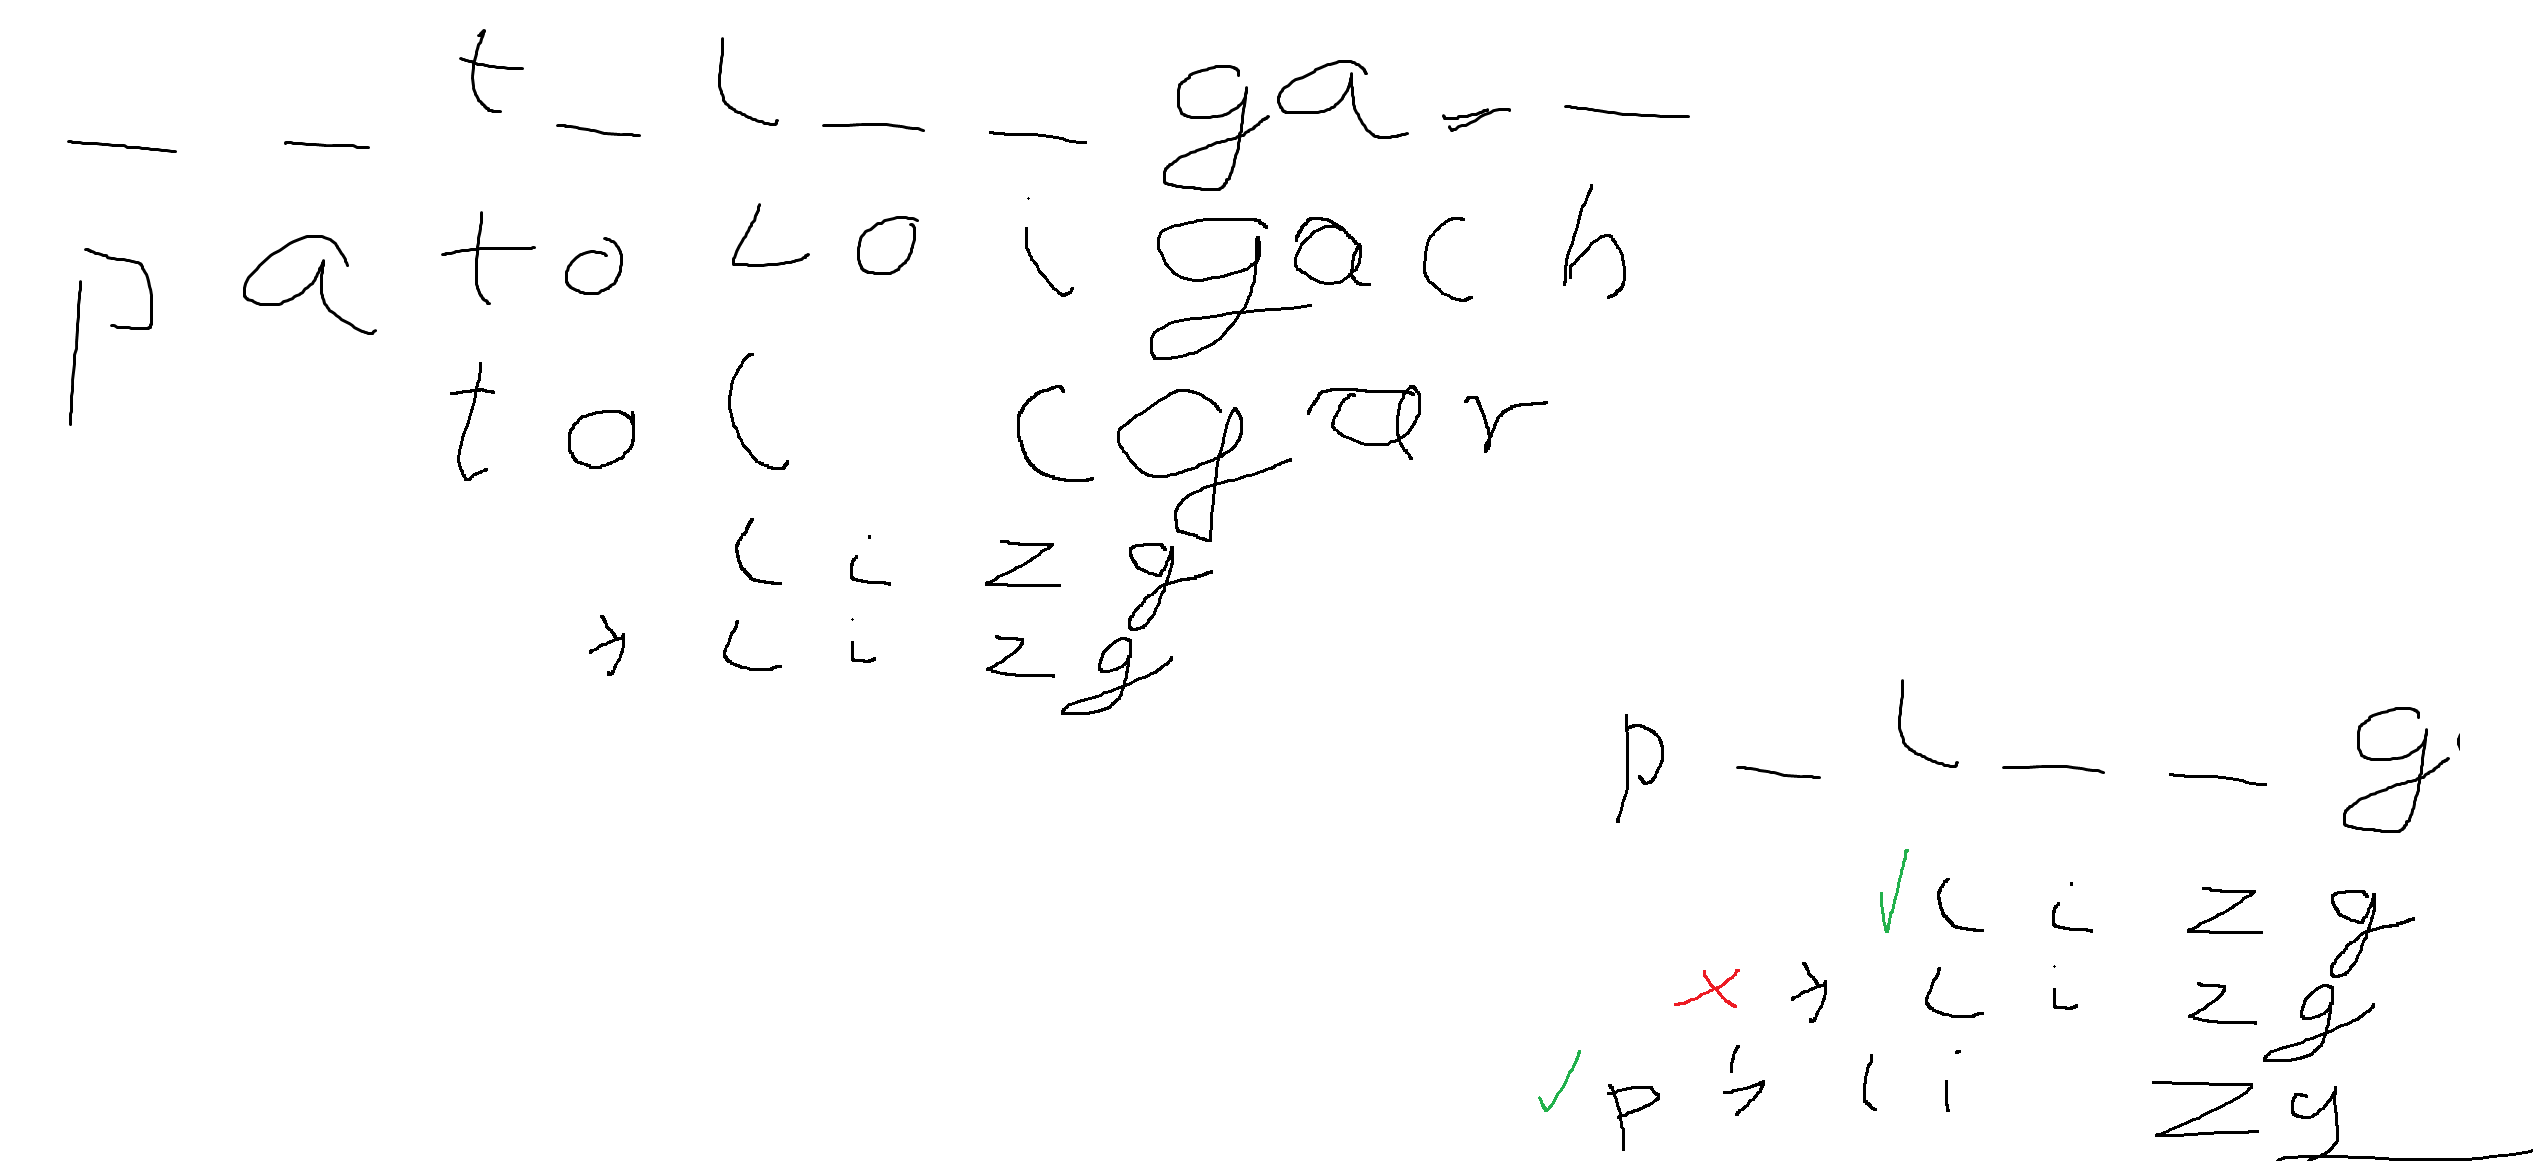 _ _ t _ l _ _ g a _ _
p a t o l o i g a c h
t o l c g a r
l i z g
l i z g
p _ l _ _ g
l i z g
l i z g
p l i z g